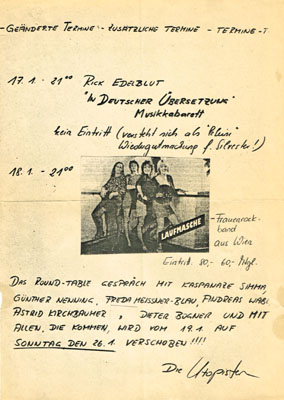 - GEÄNDERTE TERMINE - ZUSÄTZLICHE TERMINE - TERMINE - T
17.1. - 21⁰⁰ RICK EDELBLUT
"IN DEUTSCHER ÜBERSETZUNG"
MUSIKKABARETT
kein Eintritt (versteht sich als "kleine"
Wiedergutmachung f. Silvester!)
18.1. - 21⁰⁰
LAUFMASCHE
- Frauenrock-
band
aus Wien
Eintritt 80,- 60,- Mitgl.
DAS ROUND-TABLE GESPRÄCH MIT KASPANAZE SIMMA,
GÜNTHER NENNING, FREDA MEISSNER-BLAU, ANDREAS WABL
ASTRID KIRCHBAUMER, DIETER BOGNER UND MIT
ALLEN, DIE KOMMEN, WIRD VOM 19.1. AUF
SONNTAG DEN 26.1. VERSCHOBEN!!!!
Die Utopisten